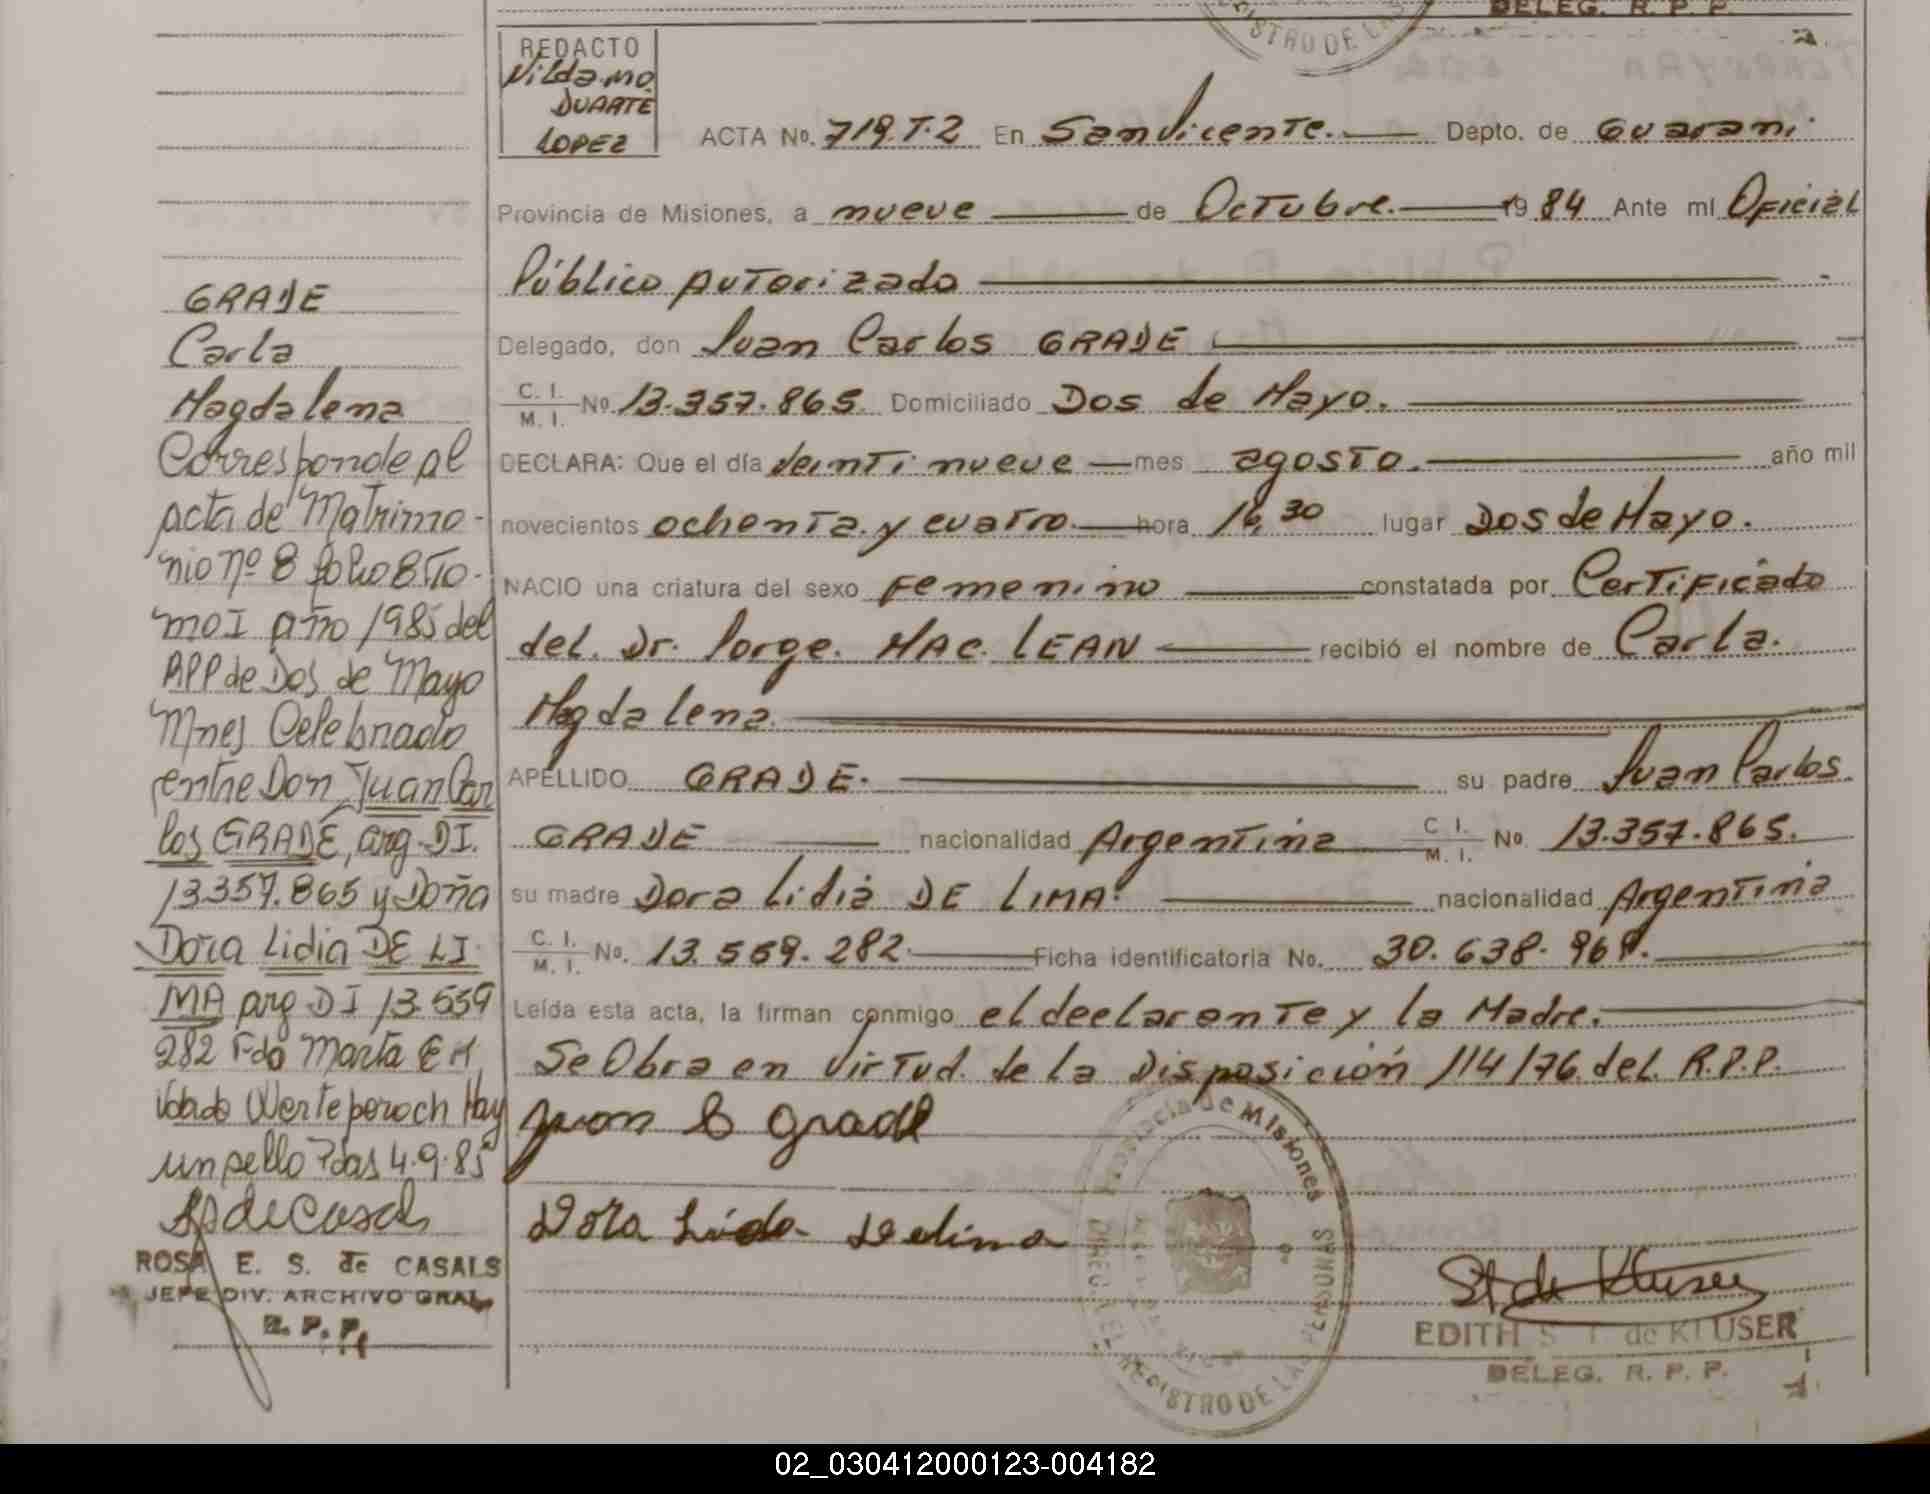 DELEG. R. P. P.
ISTRO DE LAS
REDACTO
Nilda.mo.
DUARTE
LOPEZ
ACTA No. 719.T.2 En San Vicente. Depto. de Guarani.
Provincia de Misiones, a nueve de Octubre. 19 84 Ante mí Oficial
Público Autorizado
Delegado, don Juan Carlos GRADE
C. I. / M. I. No. 13.357.865 Domiciliado Dos de Mayo.
DECLARA: Que el día veinti nueve mes agosto. año mil
novecientos ochenta. y cuatro. hora 16,30 lugar Dos de Mayo.
NACIO una criatura del sexo Femenino constatada por Certificado
del. Dr. Jorge. MAC. LEAN recibió el nombre de Carla.
Magdalena.
APELLIDO GRADE. su padre Juan Carlos.
GRADE nacionalidad Argentina C. I. / M. I. No. 13.357.865.
su madre Dora Lidia DE LIMA. nacionalidad Argentina
C. I. / M. I. No. 13.559.282. Ficha identificatoria No. 30.638.969.
Leída esta acta, la firman conmigo el declarante y la Madre.
Se Obra en Virtud. de la Disposición 114/76. del. R.P.P.
Juan C Grade
Dora Lida Delima
Provincia de Misiones
REGISTRO DE LAS PERSONAS
St de Kluser
EDITH S. T. de KLUSER
DELEG. R. P. P.
GRADE
Carla
Magdalena
Corresponde al
acta de Matrimo-
nio nº 8 folio 8 To-
mo I año 1985 del
RPP de Dos de Mayo
Mnes Celebrado
entre Don Juan Car
los GRADE, arg. DI.
13.357.865 y Doña
Dora Lidia DE LI-
MA arg DI 13.559
282 Fdo Marta E H
Werle
Hay
un sello Pdas 4.9.85
de Casals
ROSA E. S. de CASALS
JEFE DIV. ARCHIVO GRAL.
R. P. P.
02_030412000123-004182